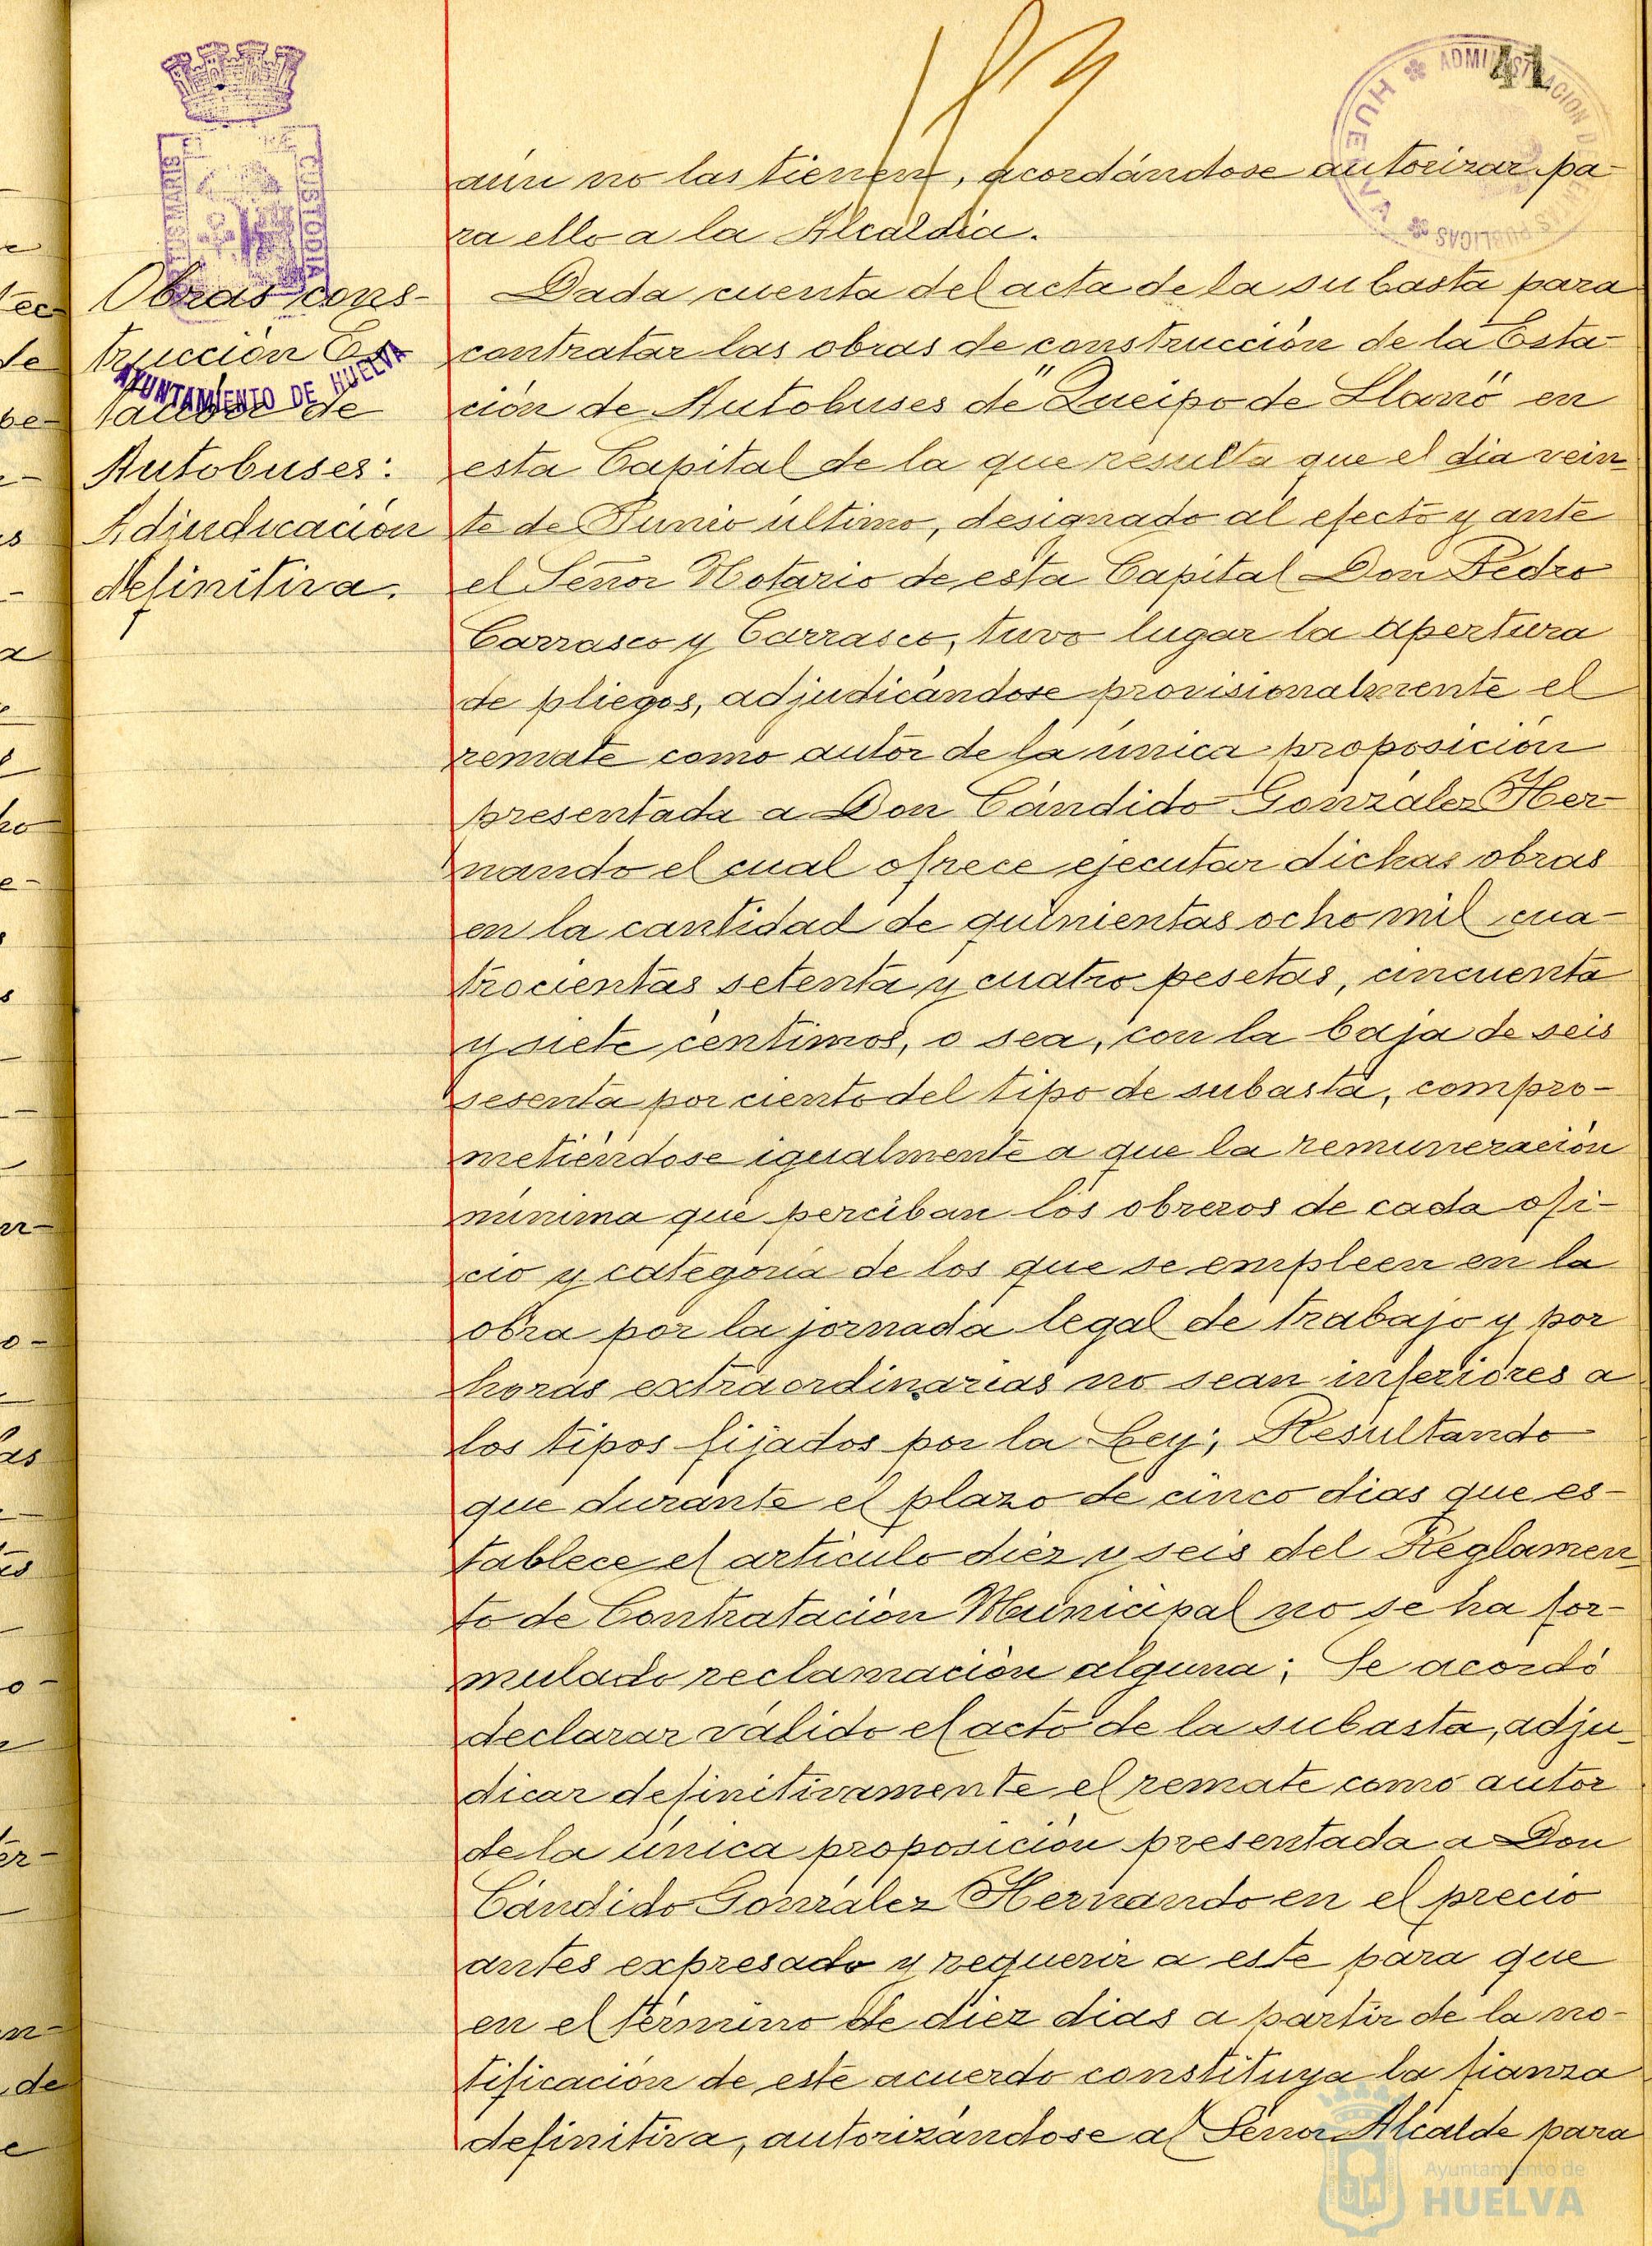 41
ADMINISTRACION DE
HUELVA
PUBLICAS
CUSTODIA
MARIS
AYUNTAMIENTO DE HUELVA
Obras cons-
trucción Es
tación de
Autobuses:
Adjudicación
definitiva.
aún no las tienen, acordándose autorizar pa-
ra ello a la Alcaldía.
Dada cuenta del acta de la subasta para
contratar las obras de construcción de la Esta-
ción de Autobuses de "Queipo de Llano" en
esta Capital de la que resulta que el dia vein-
te de Junio último, designado al efecto y ante
el Señor Notario de esta Capital Don Pedro
Carrasco y Carrasco, tuvo lugar la apertura
de pliegos, adjudicándose provisionalmente el
remate como autor de la única proposición
presentada a Don Cándido González Her-
nando el cual ofrece ejecutar dichas obras
en la cantidad de quinientas ocho mil cua-
trocientas setenta y cuatro pesetas, cincuenta
y siete céntimos, o sea, con la baja de seis
sesenta por ciento del tipo de subasta, compro-
metiéndose igualmente a que la remuneración
mínima que perciban los obreros de cada ofi-
cio y categoría de los que se empleen en la
obra por la jornada legal de trabajo y por
horas extraordinarias no sean inferiores a
los tipos fijados por la Ley; Resultando
que durante el plazo de cinco dias que es-
tablece el artículo diez y seis del Reglamen-
to de Contratación Municipal no se ha for-
mulado reclamación alguna; Se acordó
declarar válido el acto de la subasta, adju-
dicar definitivamente el remate como autor
de la única proposición presentada a Don
Cándido González Hernando en el precio
antes expresado y requerir a este para que
en el término de diez dias a partir de la no-
tificación de este acuerdo constituya la fianza
definitiva, autorizándose al Señor Alcalde para
Ayuntamiento de
HUELVA